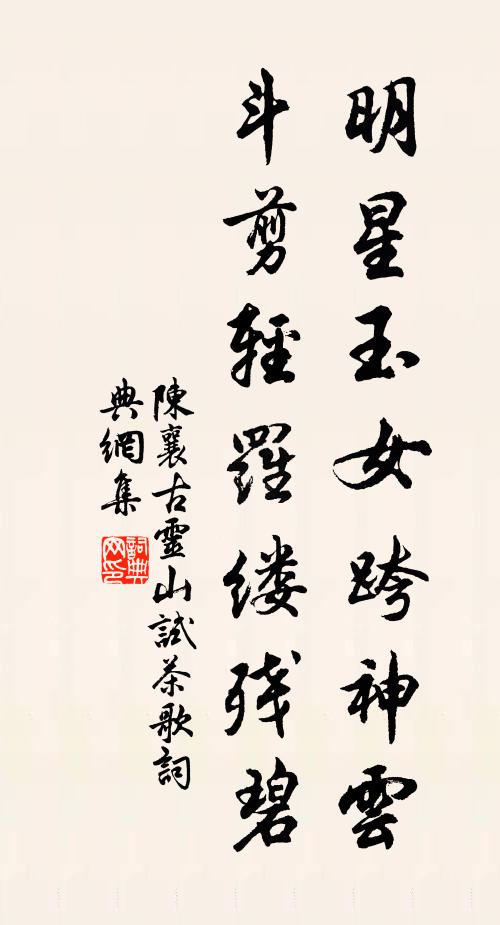 明星玉女跨神雲
斗剪輕羅缕残碧
陳襄古靈山試茶歌詞
典網集
詞典网印